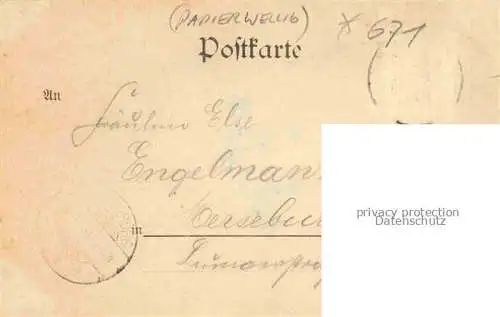 (PAPIERWELLIG) * 671
Postkarte
An
Fräulein Else
Engelman
Mersebur
in
privacy protection
Datenschutz